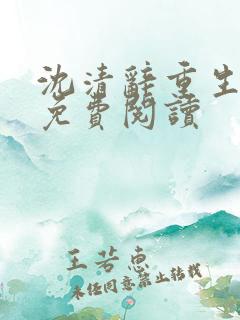 沈清辭重生
免費閱讀
王若惠
未经同意禁止转载